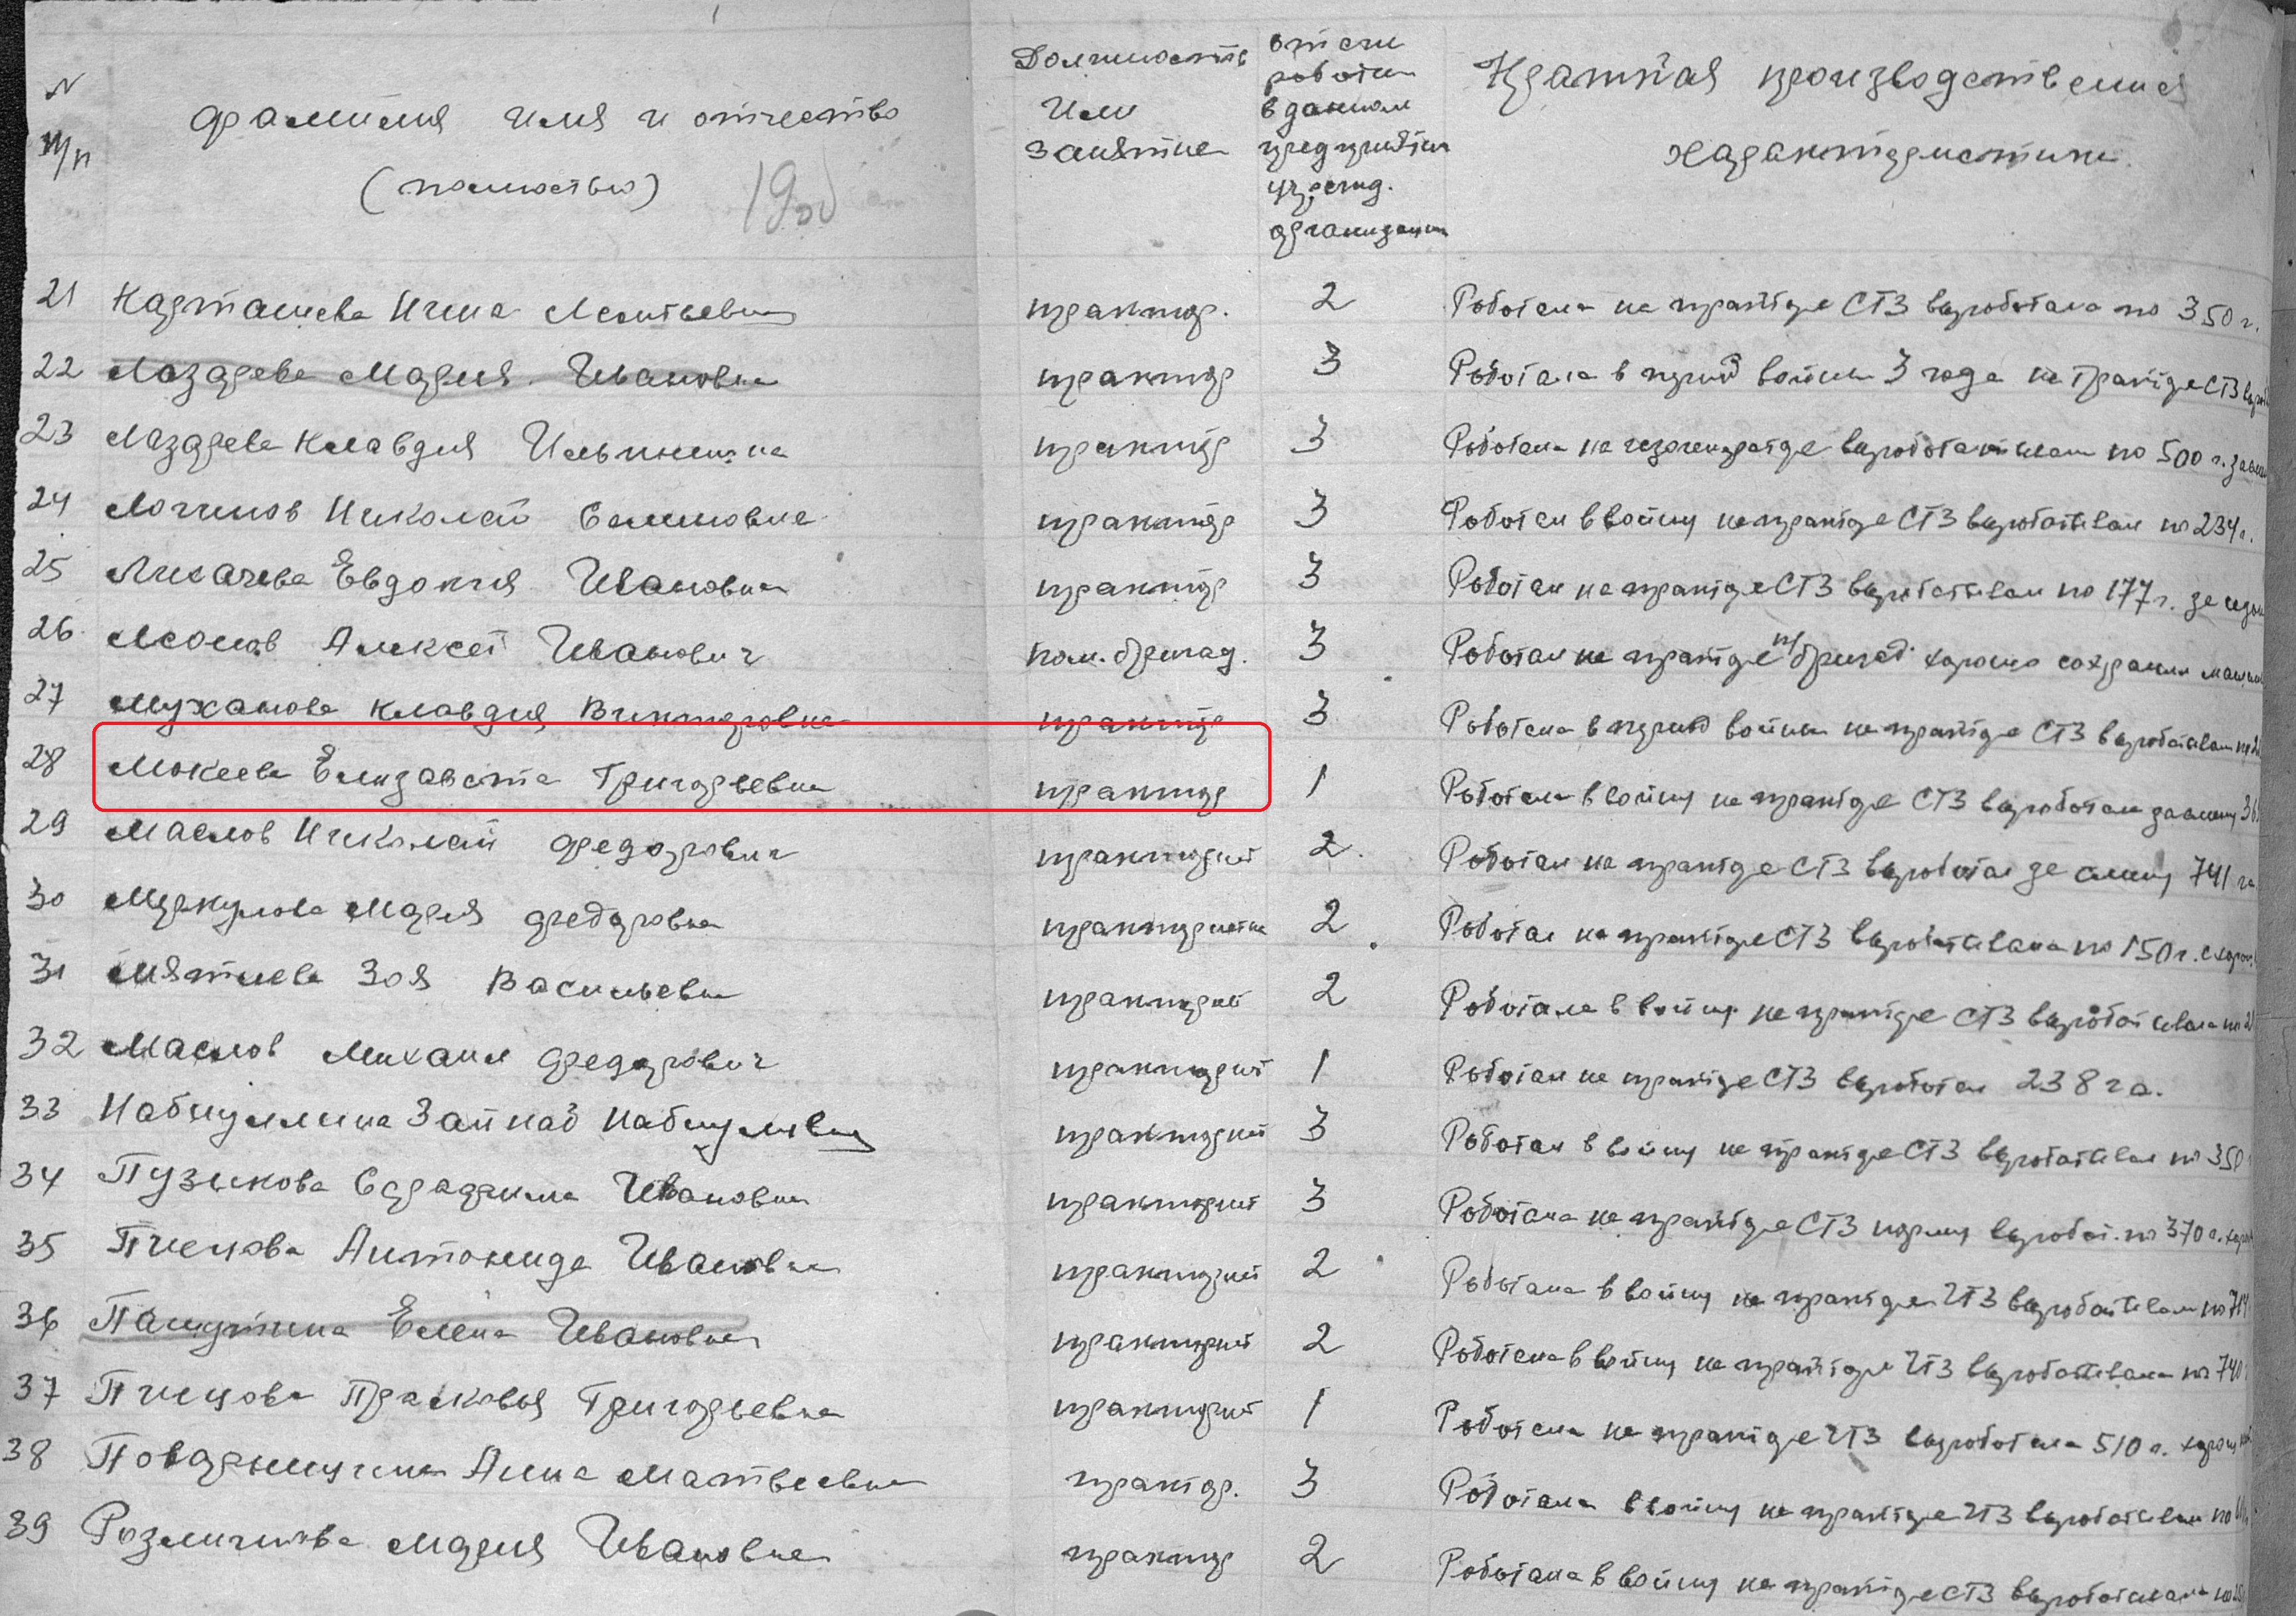 N
п/п
Фамилия имя и отчество
(полностью)
Должность
или
занятие
работы
в данном
предприятии
учрежд.
организации
Краткая производственная
характеристика
21 Карташева Нина Леонтьевна трактор. 2 Работала на тракторе СТЗ выработала по 350 г.
22 Лазарева Мария Ивановна трактор 3 Работала в период войны 3 года на тракторе СТЗ
23 Лазарева Клавдия Ильинишна трактор 3 Работала на газогенераторе вырабатывала по 500 г.
24 Логинов Николай трактор 3 Работал в войну на тракторе СТЗ вырабатывал по 234 г.
25 Лихачева Евдокия Ивановна трактор 3 Работал на тракторе СТЗ вырабатывал по 177 г. за сезон
26 Алексей Иванович пом. бригад. 3 Работал на тракторе п/бригад. хорошо сохранял
27 Муханова Клавдия Викторовна трактор 3 Работала в период войны на тракторе СТЗ вырабатывал
28 Мокеева Елизавета Григорьевна трактор 1 Работала в войну на тракторе СТЗ выработала
29 Маслов Николай Федорович тракторист 2 Работал на тракторе СТЗ выработал за смену 741 га
30 Меркулова Мария Федоровна трактористка 2 Работал на тракторе СТЗ вырабатывала по 150 г.
31 Мятлева Зоя Васильевна тракторист 2 Работала в войну на тракторе СТЗ вырабатывала по
32 Маслов Михаил Федорович тракторист 1 Работал на тракторе СТЗ выработал 238 га.
33 Набиуллина Зайнаб тракторист 3 Работал в войну на тракторе СТЗ вырабатывал по 350
34 Пузикова Ивановна тракторист 3 Работала на тракторе СТЗ норму выработ. по 370 г.
35 Антонида Ивановна тракторист 2 Работала в войну на тракторе ЧТЗ вырабатывал по
36 Елена Ивановна тракторист 2 Работала в войну на тракторе ЧТЗ вырабатывала по 740
37 Прасковья Григорьевна тракторист 1 Работала на тракторе ЧТЗ выработала 510 г.
38 Анна Матвеевна трактор. 3 Работала в войну на тракторе ЧТЗ вырабатывал по
39 Мария Ивановна трактор 2 Работала в войну на тракторе СТЗ вырабатывала по